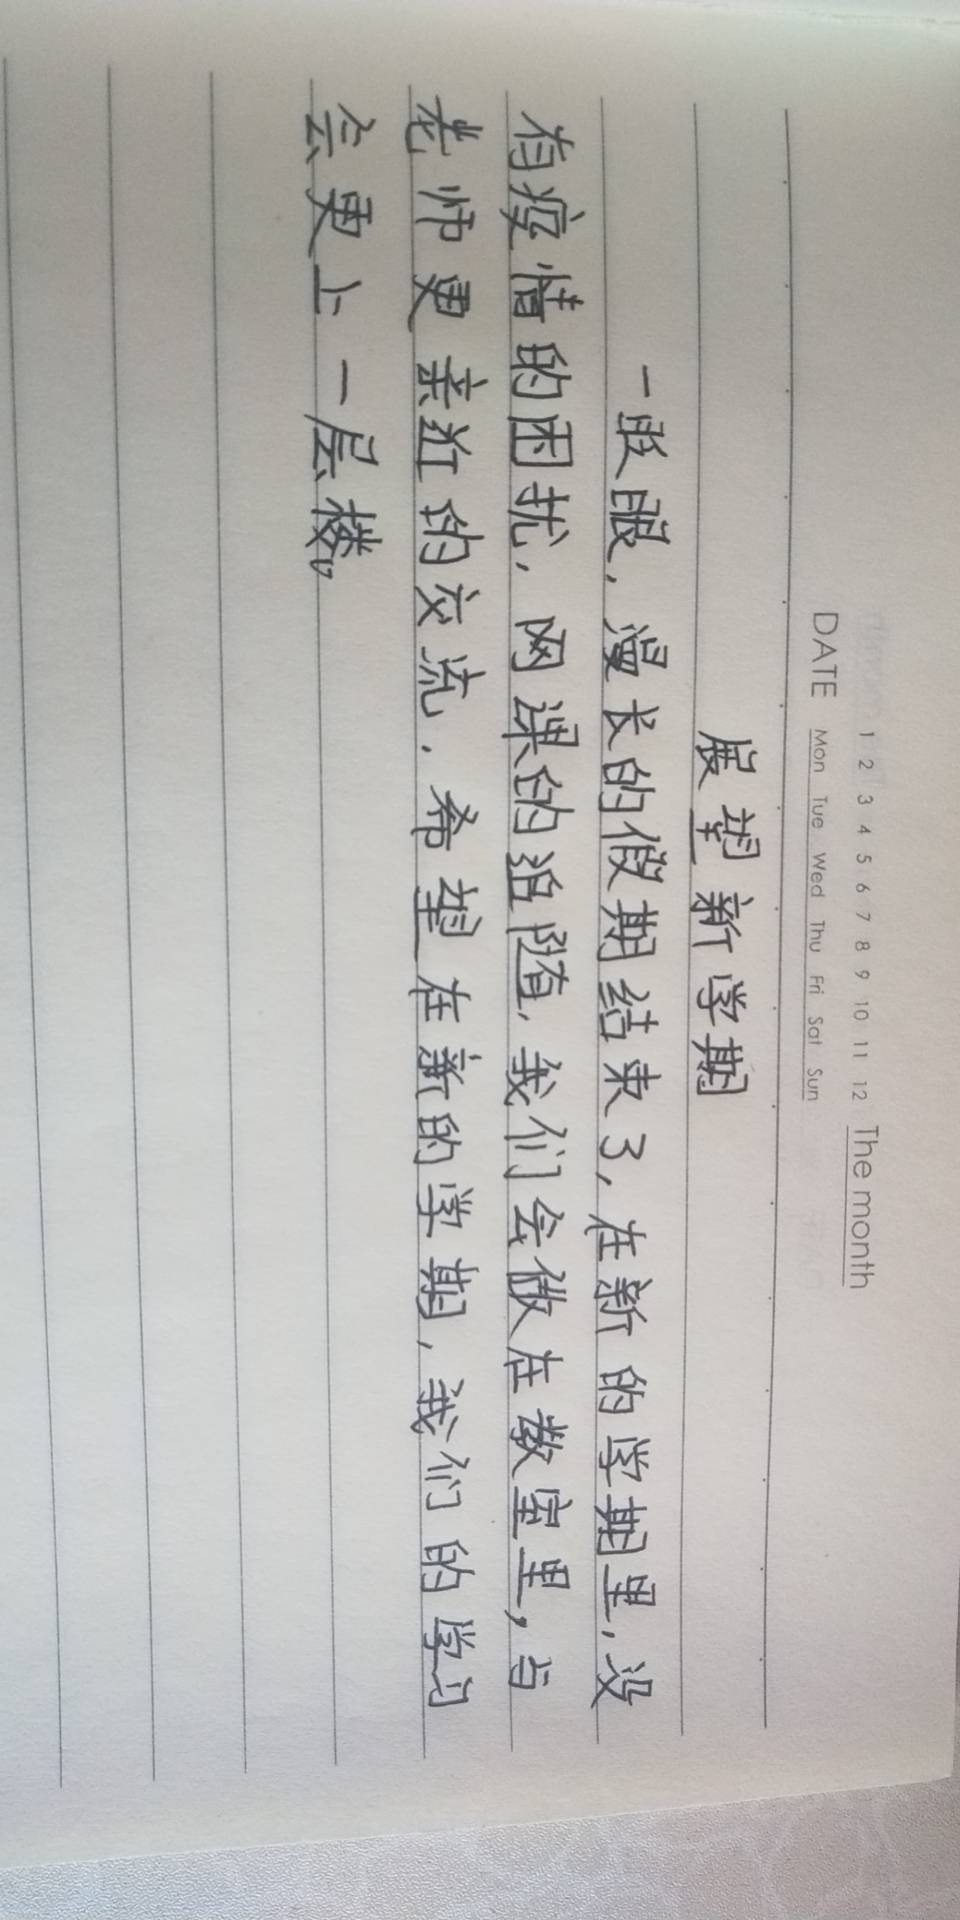 1 2 3 4 5 6 7 8 9 10 11 12 The month
DATE Mon Tue Wed Thu Fri Sat Sun
展望新学期
一眨眼,漫长的假期结束了,在新的学期里,没
有疫情的困扰,网课的追随,我们会做在教室里,与
老师更亲近的交流,希望在新的学期,我们的学习
会更上一层楼。